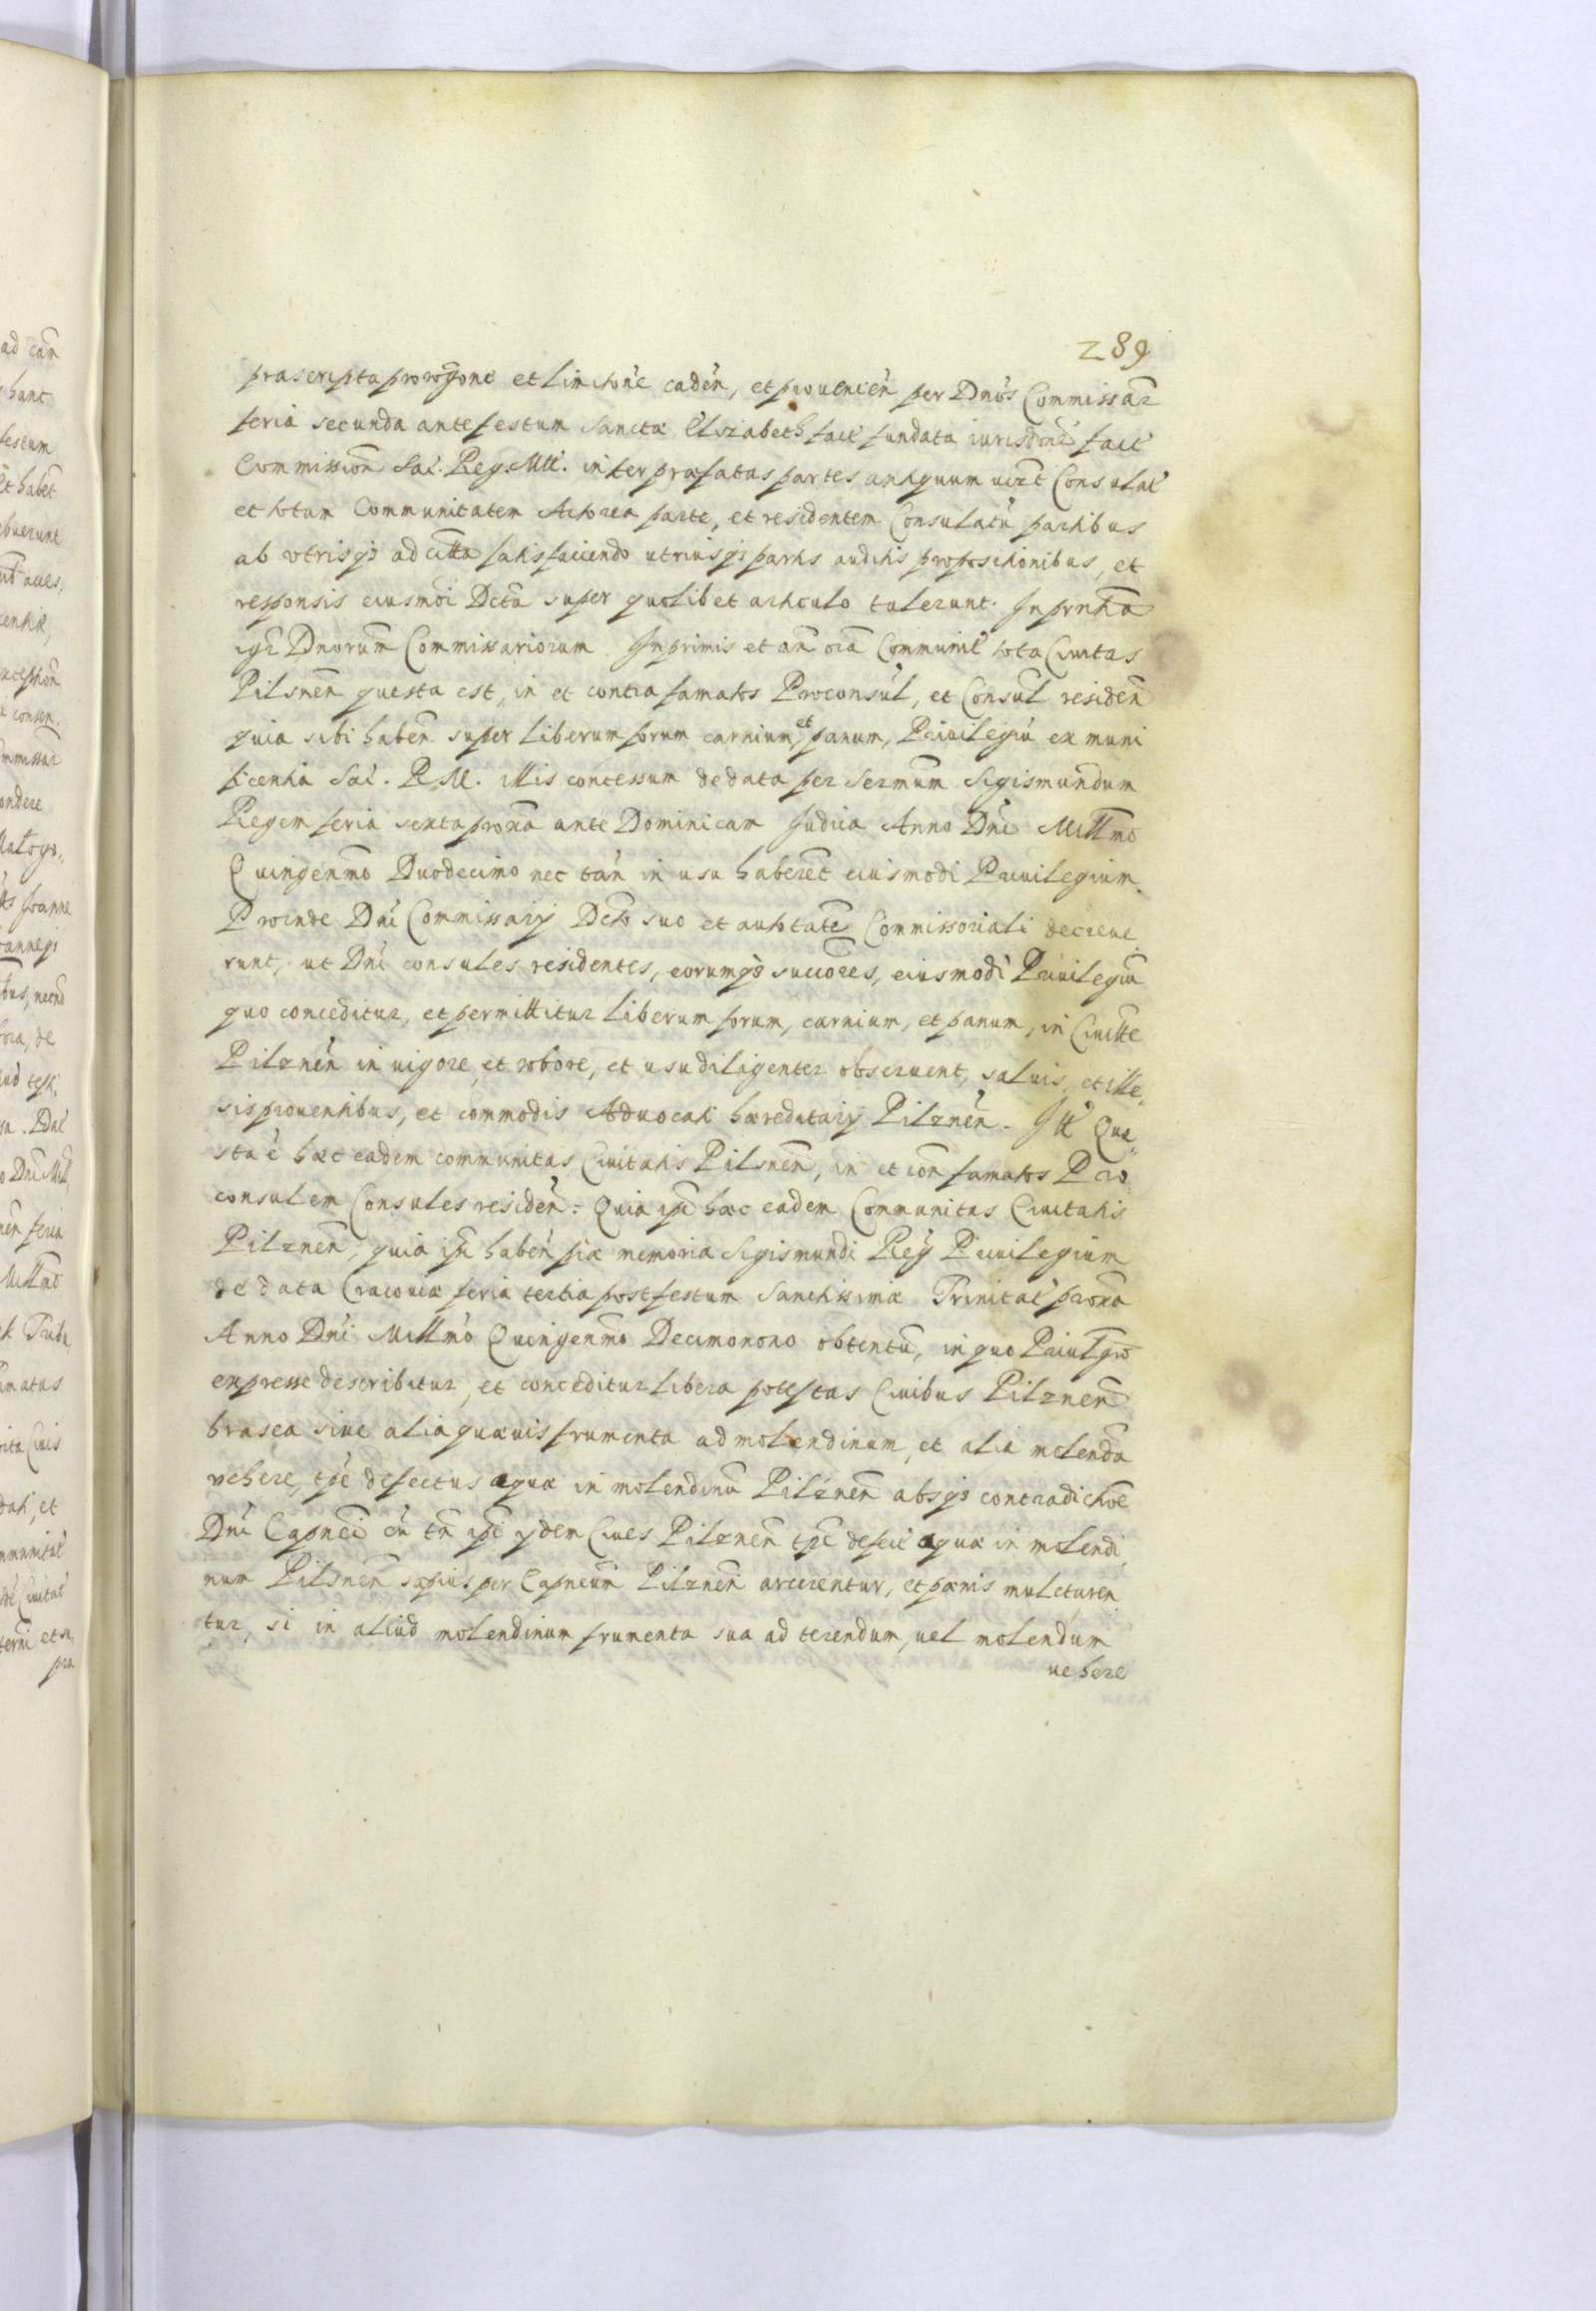 289
præscripta prorogōne et limitōne cadeñ, et prouenień per Dnōs Commissar
feria secunda ante festum Sanctæ Elszabeth fact fundata iurisdōne fact
Commission̄ Sac. Reg. Mtt. inter præfatas partes antiquum vizt Consulat
et totam Communitatem Actorea parte, et residentem Consulatū partibus
ab vtrisqs ad satisfaciendo utriusqs partis auditis propositionibus, et
responsis eiusmōi Dcta super quolibet articulo tulerunt. In prntia
igr Dnorum Commissariorum. Inprimis et an oīa Communit tota Ciuitas
Pilsneñ questa est, in et contra famatos Proconsul, et Consul resideñ
quia sibi habeñ super liberum forum carnium, et panum, Priuilegiū ex muni
ficentia Sac. R. M. illis concessum de data per Sermum Sigismundum
Regem feria sexta proxa ante Dominicam Judica Anno Dni Millmo
Quingenmo Duodecimo nec tań in usu haberet eiusmodi Priuilegium.
Proinde Dni Commissarij Dcto suo et auttate Commissoriali decreue
runt, ut Dni consules residentes, eorumqs succores, eiusmodi Priuilegiū
quo conceditur, et permittitur liberum forum, carnium, et panum, in Ciuitte
Pilzneń in uigore, et robore, et usu diligenter obseruent, saluis, et ille,
sis prouentibus, et commodis Aduocati hæreditarij Pilzneń. Itt Que
sta ē hæc eadem communitas Ciuitatis Pilsneñ, in et con famatos Pro
consulem Consules resideń: Quia ipē hæc eadem Communitas Ciuitatis
Pilzneñ, quia ipē habeń piæ memoriæ Sigismundi Reg Priuilegium
de data Cracouiæ feria tertia post festum Sanctissimæ Trinitat proxa
Anno Dni Millmo Quingenmo Decimonono obtentū, in quo Priulgio
expresse describitur, et conceditur libera potestas Ciuibus Pilzneñ
brasea siue alia quæuis frumenta ad molendinum, et alia molenda
vehere, tpē defectus aquæ in molendinū Pilzneñ absqs contradictōe
Dni Capnei cū tn ipē ydem Ciues Pilzneñ tpē defect aquæ in molendi
num Pilsneñ sæpius per Capneum Pilzneñ arcerentur, et pænis mulctaren
tur, si in aliud molendinum frumenta sua ad terendum, uel molendum
uehere